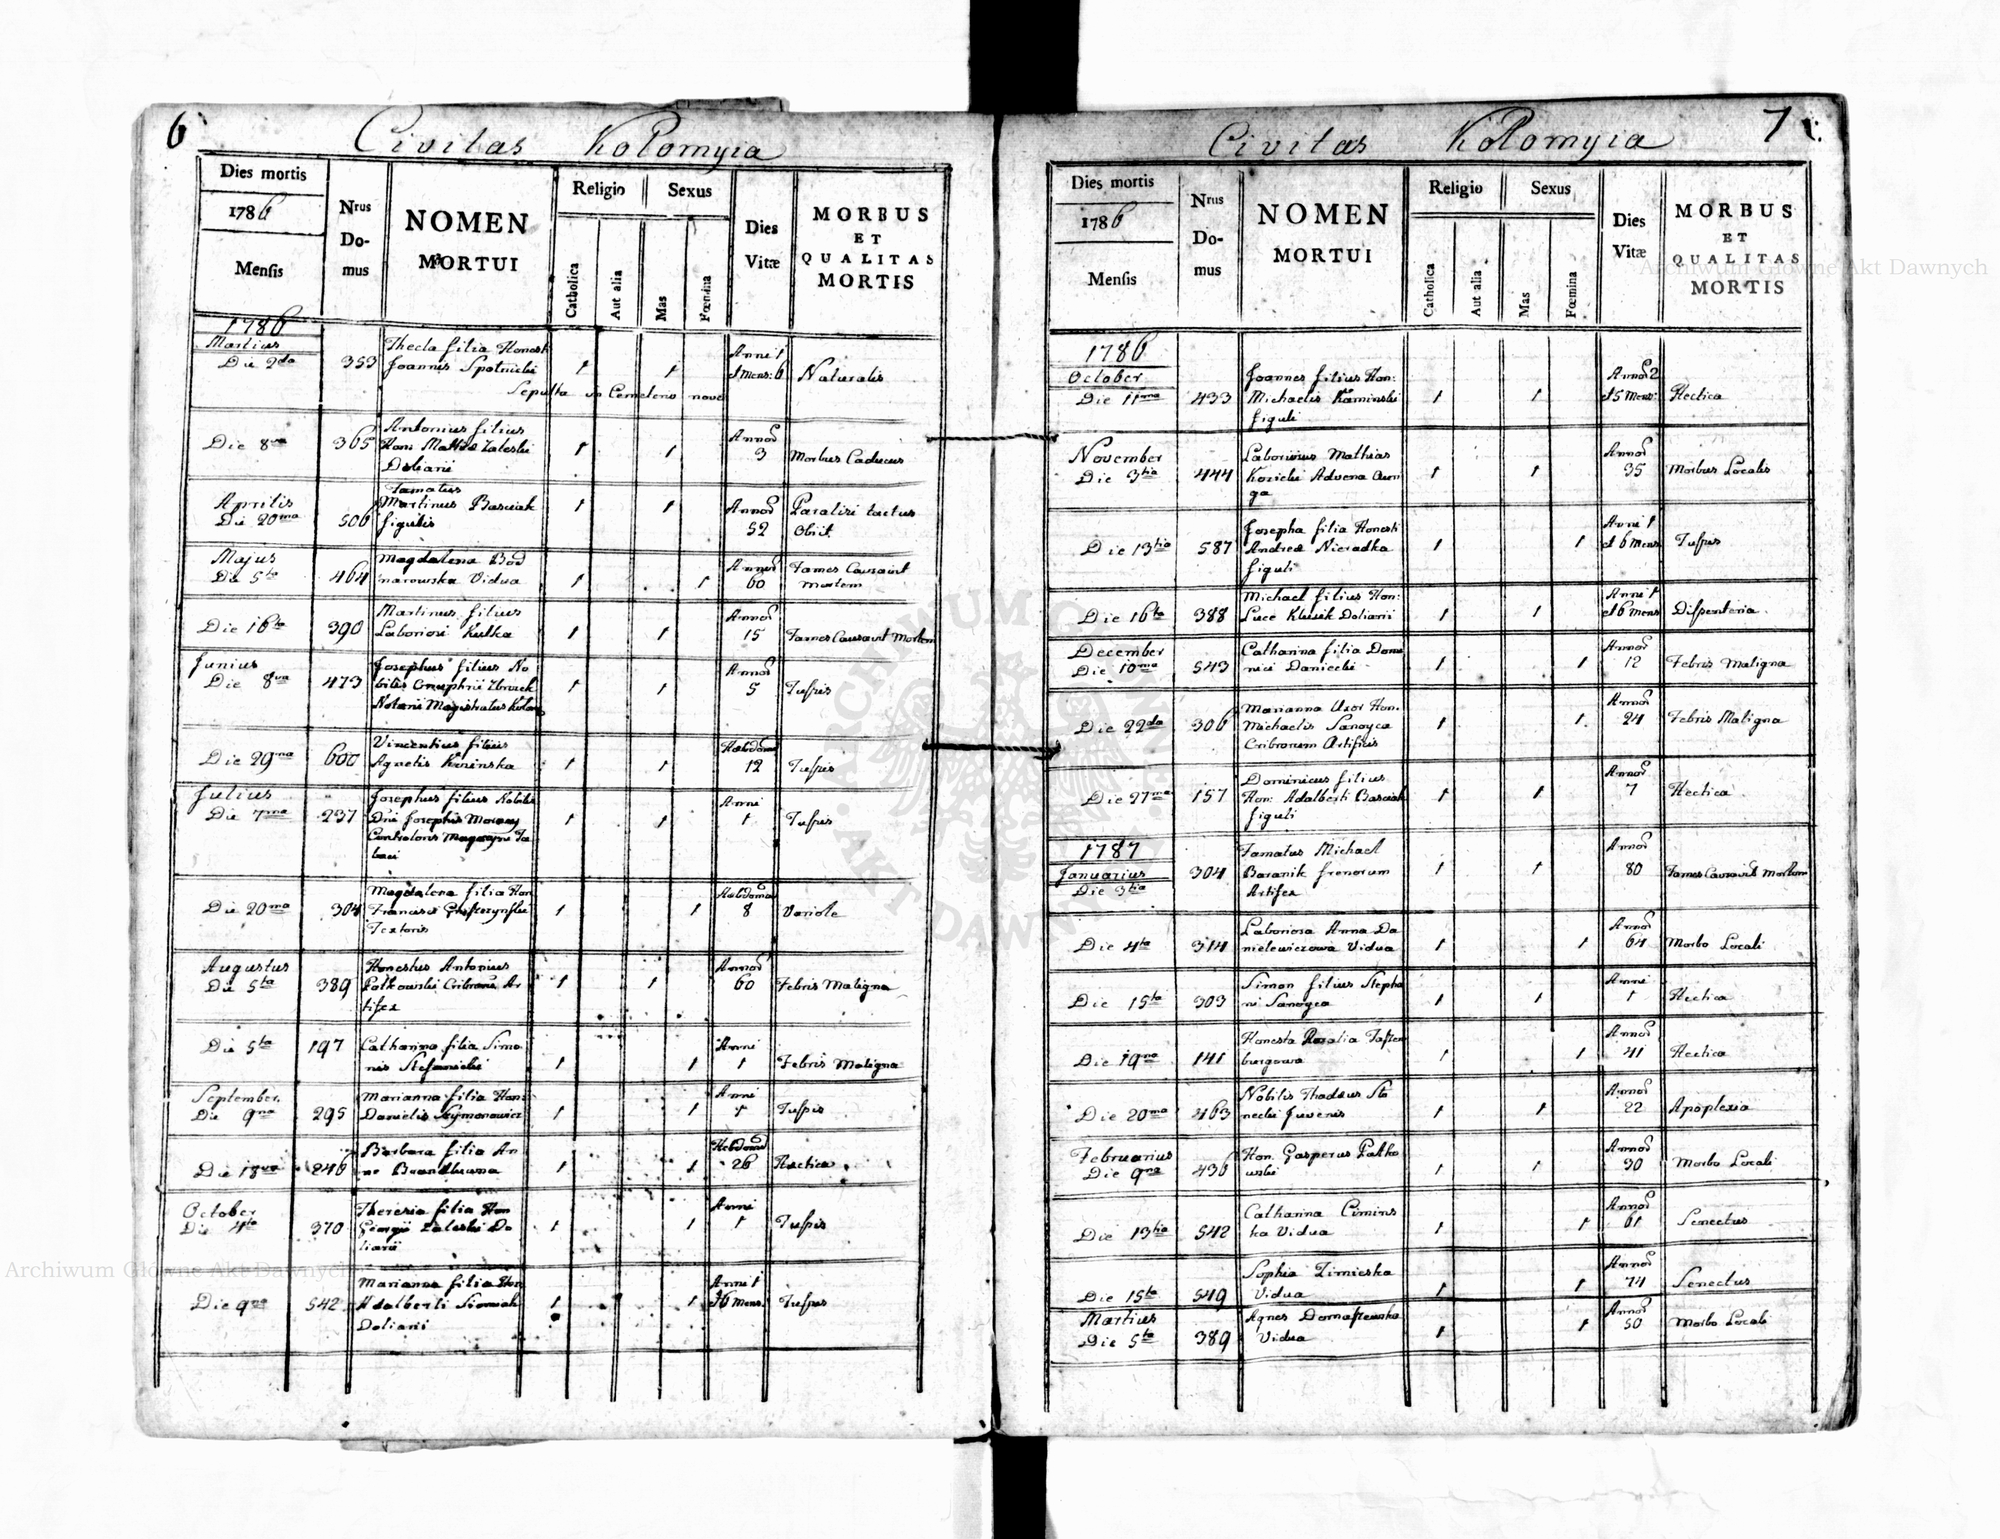 6
Civitas Kolomyia
Dies mortis
1786
Mensis
Nrus Do- mus
NOMEN
MORTUI
Religio
Catholica
Aut alia
Sexus
Mas
Fœmina
Dies
Vitæ
MORBUS
ET
QUALITAS
MORTIS
1786
Martius
Die 2da 353 Thecla filia Honesti Anni 1
Joannis 1 1 et Mens: 6 Naturalis
Sepulta in Cemeterio novo
Antonius filius
Die 8va 365 Hon: Mathiæ Zaleski 1 1 Annor 3 Morbus Caducus
Doliarii
Famatus
Aprilis Martinus Basciak 1 1 Annor Paralisi tactus
Die 20ma 506 figulis 52 Obiit
Majus Magdalena Bod Annor Fames Causavit
Die 5ta 464 narowska Vidua 1 1 60 mortem
Martinus filius Annor
Die 16ta 390 Laboriosi Kulka 1 1 15 Fames Causavit Mortem
Junius Josephus filius No Annor
Die 8va 473 bilis Onuphrii 1 1 5 Tussis
Notarii Magistratus Kolom
Vincentius filius Hebdoma
Die 29na 600 Agnetis Kminska 1 1 12 Tussis
Julius Josephus filius Nobilis Anni
Die 7ma 237 Dni Josephi 1 1 1 Tussis
Magdalena filia Hon Hebdoma
Die 20ma 304 Francisci 1 1 8 Variole
Textoris
Augustus Honestus Antonius Annor
Die 5ta 389 Patkowski Cribrarius Ar 1 1 60 Febris Maligna
tifex
Die 5ta 197 Catharina filia Simo Anni
nis Stefanicki 1 1 1 Febris Maligna
September Marianna filia Hon: Anni
Die 9na 295 Danielis Szymonowicz 1 1 1 Tussis
Barbara filia An Hebdoma
Die 18va 246 ne 1 1 26 Hectica
October Theresia filia Hon Anni
Die 4ta 370 Georgii Zaleski Do 1 1 1 Tussis
liarii
Marianna filia Hon Anni 1
Die 9na 542 Adalberti 1 1 et 6 Mens. Tussis
Doliarii
7
Civitas Kolomyia
Dies mortis
1786
Mensis
Nrus Do- mus
NOMEN
MORTUI
Religio
Catholica
Aut alia
Sexus
Mas
Fœmina
Dies
Vitæ
MORBUS
ET
QUALITAS
MORTIS
1786
October Joannes filius Hon: Annor 2
Die 11ma 433 Michaelis Kaminski 1 1 et 5 Mens: Hectica
figuli
November Laboriosus Mathias Annor
Die 3tia 444 Kozicki Advena Auri 1 1 35 Morbus Localis
ga
Josepha filia Honesti Anni 1
Die 13tia 587 Andreæ Nieradka 1 1 et 6 Mens Tussis
figuli
Michael filius Hon: Anni 1
Die 16ta 388 Luce Klusik Doliarii 1 1 et 6 Mens Dissenteria
December Catharina filia Domi Annor
Die 10ma 543 nici Daniecki 1 1 12 Febris Maligna
Marianna Uxor Hon. Annor
Die 22da 306 Michaelis Sanoyca 1 1 24 Febris Maligna
Cribrorum Artificis
Dominicus filius Annor
Die 27ma 157 Hon: Adalberti Basciak 1 1 7 Hectica
figuli
1787 Famatus Michael Annor
Januarius 304 Baranik frenorum 1 1 80 Fames Causavit Mortem
Die 3tia Artifex
Laboriosa Anna Da Annor
Die 4ta 314 nielewiczowa Vidua 1 1 64 Morbo Locali
Simon filius Stepha Anni
Die 15ta 303 ni Sanoyca 1 1 1 Hectica
Honesta Rosalia Annor
Die 19na 141 burgowa 1 1 41 Hectica
Nobilis Thadæus Annor
Die 20ma 463 necki Juvenis 1 1 22 Apoplexia
Februarius Hon. Gasperus Patko Annor
Die 9na 436 wski 1 1 30 Morbo Locali
Catharina Cimins Annor
Die 13tia 542 ka Vidua 1 1 61 Senectus
Sophia Zimieska Annor
Die 15ta 549 Vidua 1 1 74 Senectus
Martius Agnes Domaszewska Annor
Die 5ta 389 Vidua 1 1 50 Morbo Locali
Archiwum Główne Akt Dawnych
Archiwum Główne Akt Dawnych
ARCHIWUM GŁÓWNE AKT DAWNYCH